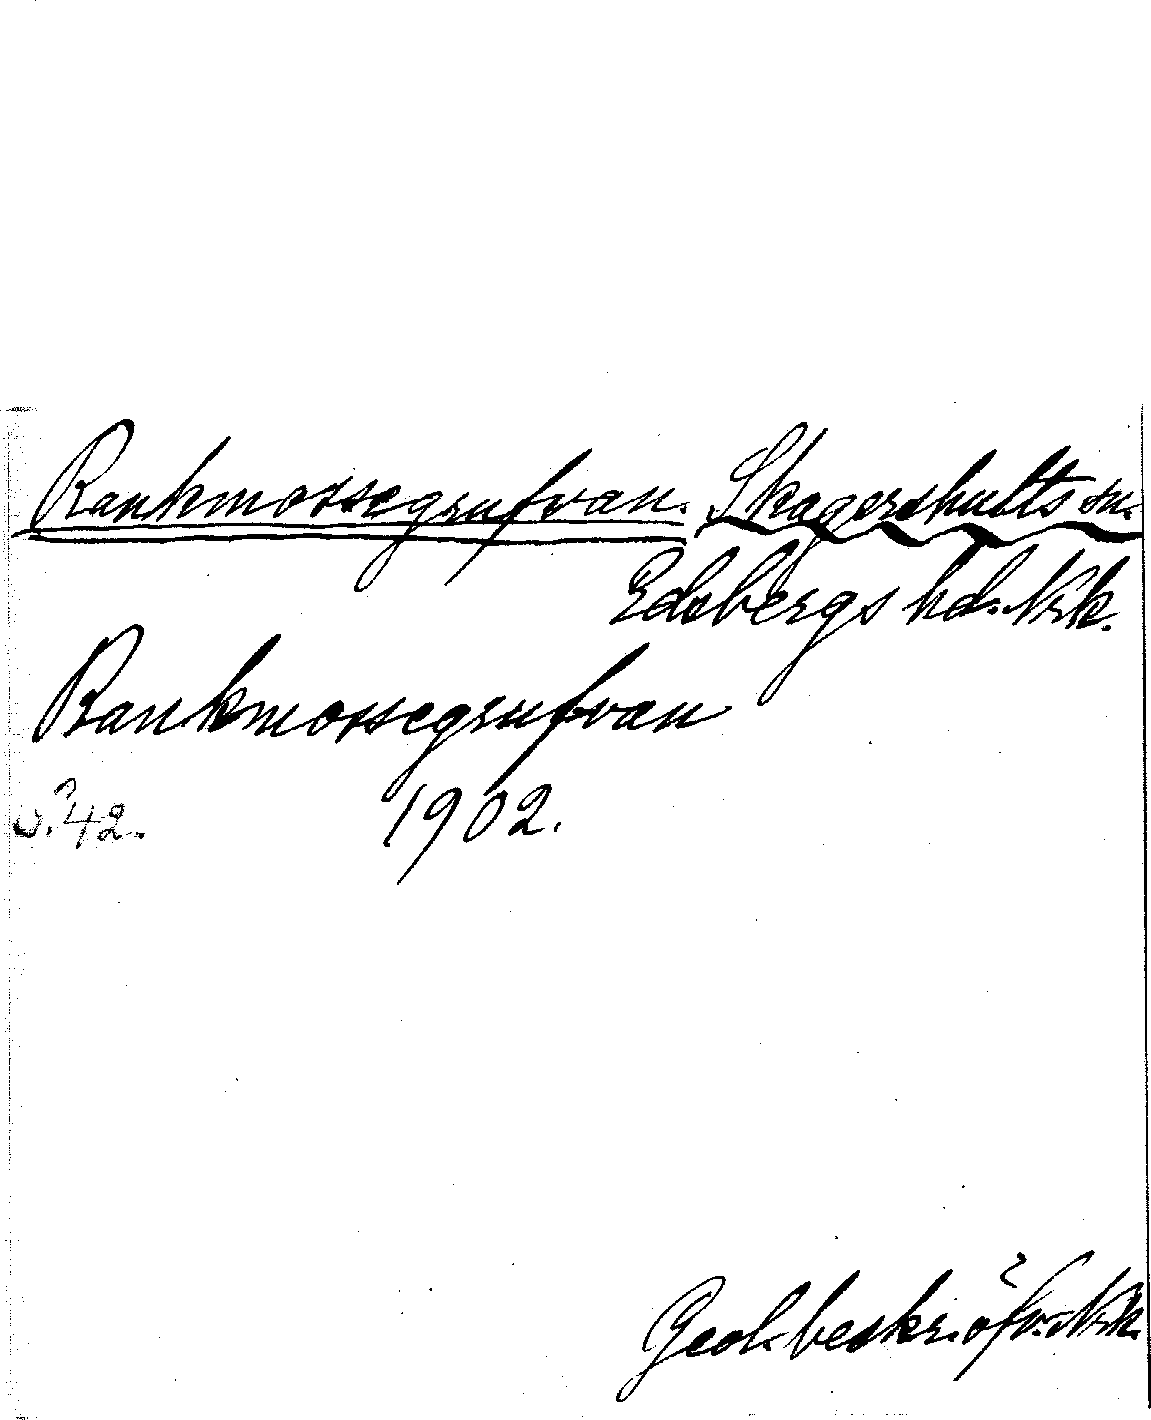 Rankmossegrufvan. Skagershults sn.
Edsbergs hd. Nrk.
Rankmossegrufvan
s. 42. 1902.
Geol. beskr. öfv. Nrk.